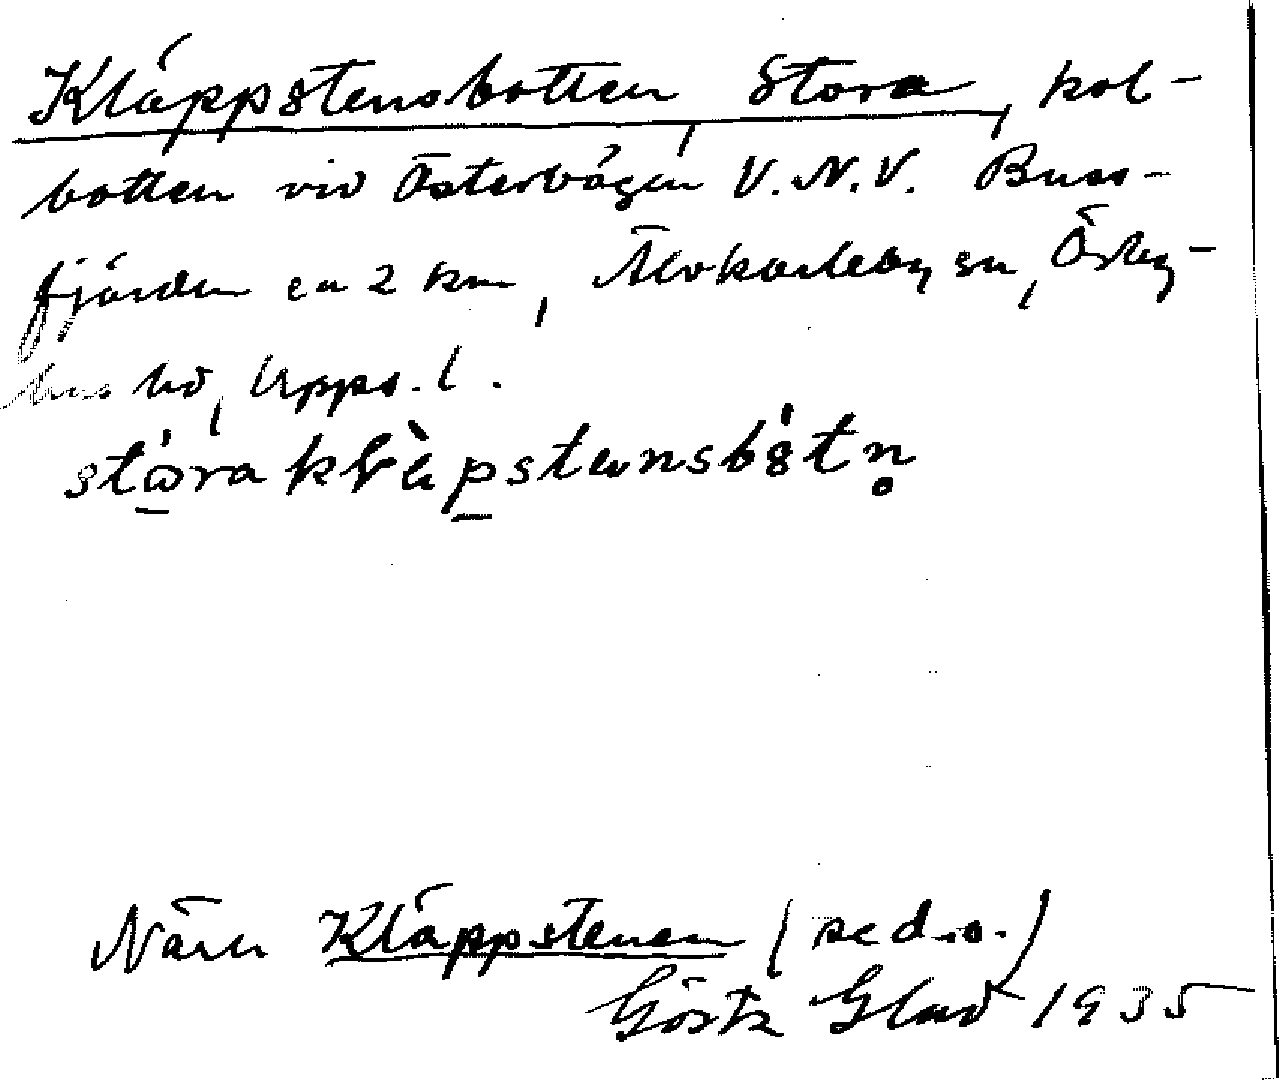 Kläppstensbotten, Stora, kol-
botten vid Österbågen V.N.V. Buss-
fjärden ca 2 km, Älvkarleby sn, Örby-
hus hd, Upps. l.
Nära Kläppstenen (se d.o.)
Gösta Glad 1935